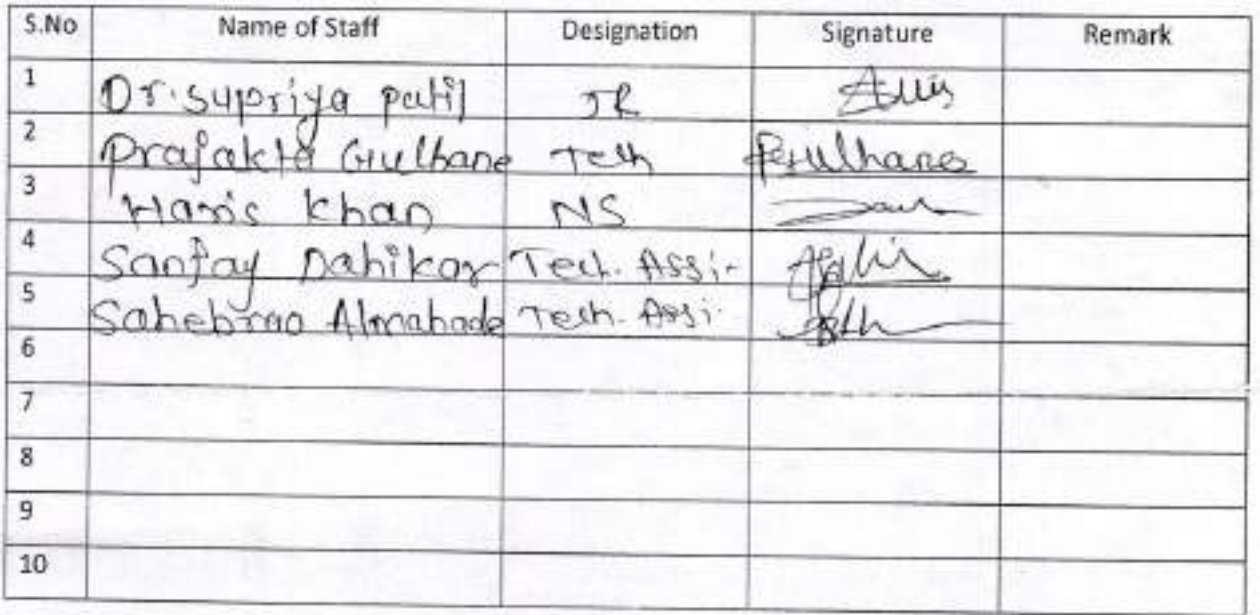 S.No Name of Staff Designation Signature Remark
1 Dr. Supriya patil JR
2 Prajakta Gulhane Tech Pgulhane
3 Haris Khan NS
4 Sanjay Dahikar Tech. Assi-
5 Sahebrao Almabade Tech. Assi-
6
7
8
9
10